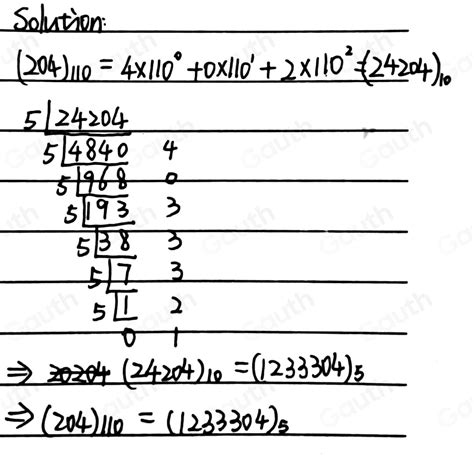 Solution:
(204)₁₁₀ = 4×110⁰ + 0×110¹ + 2×110² = (24204)₁₀
5 | 24204
5 | 4840 4
5 | 968 0
5 | 193 3
5 | 38 3
5 | 7 3
5 | 1 2
0 1
⇒ 20204 (24204)₁₀ = (1233304)₅
⇒ (204)₁₁₀ = (1233304)₅
Gauth